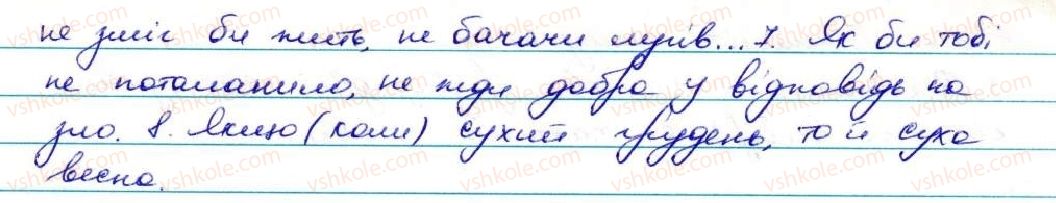 не зміг би жить, не бачачи лугів... 7. Як би тобі
не поталанило, не жди добра у відповідь на
зло. 8. Якщо (коли) сухий грудень, то й суха
весна.